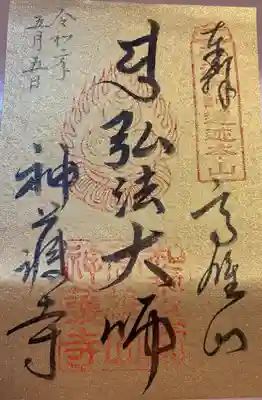 奉拝
遺迹本山
高雄山
弘法大師
神護寺
令和二年
五月五日
神護寺